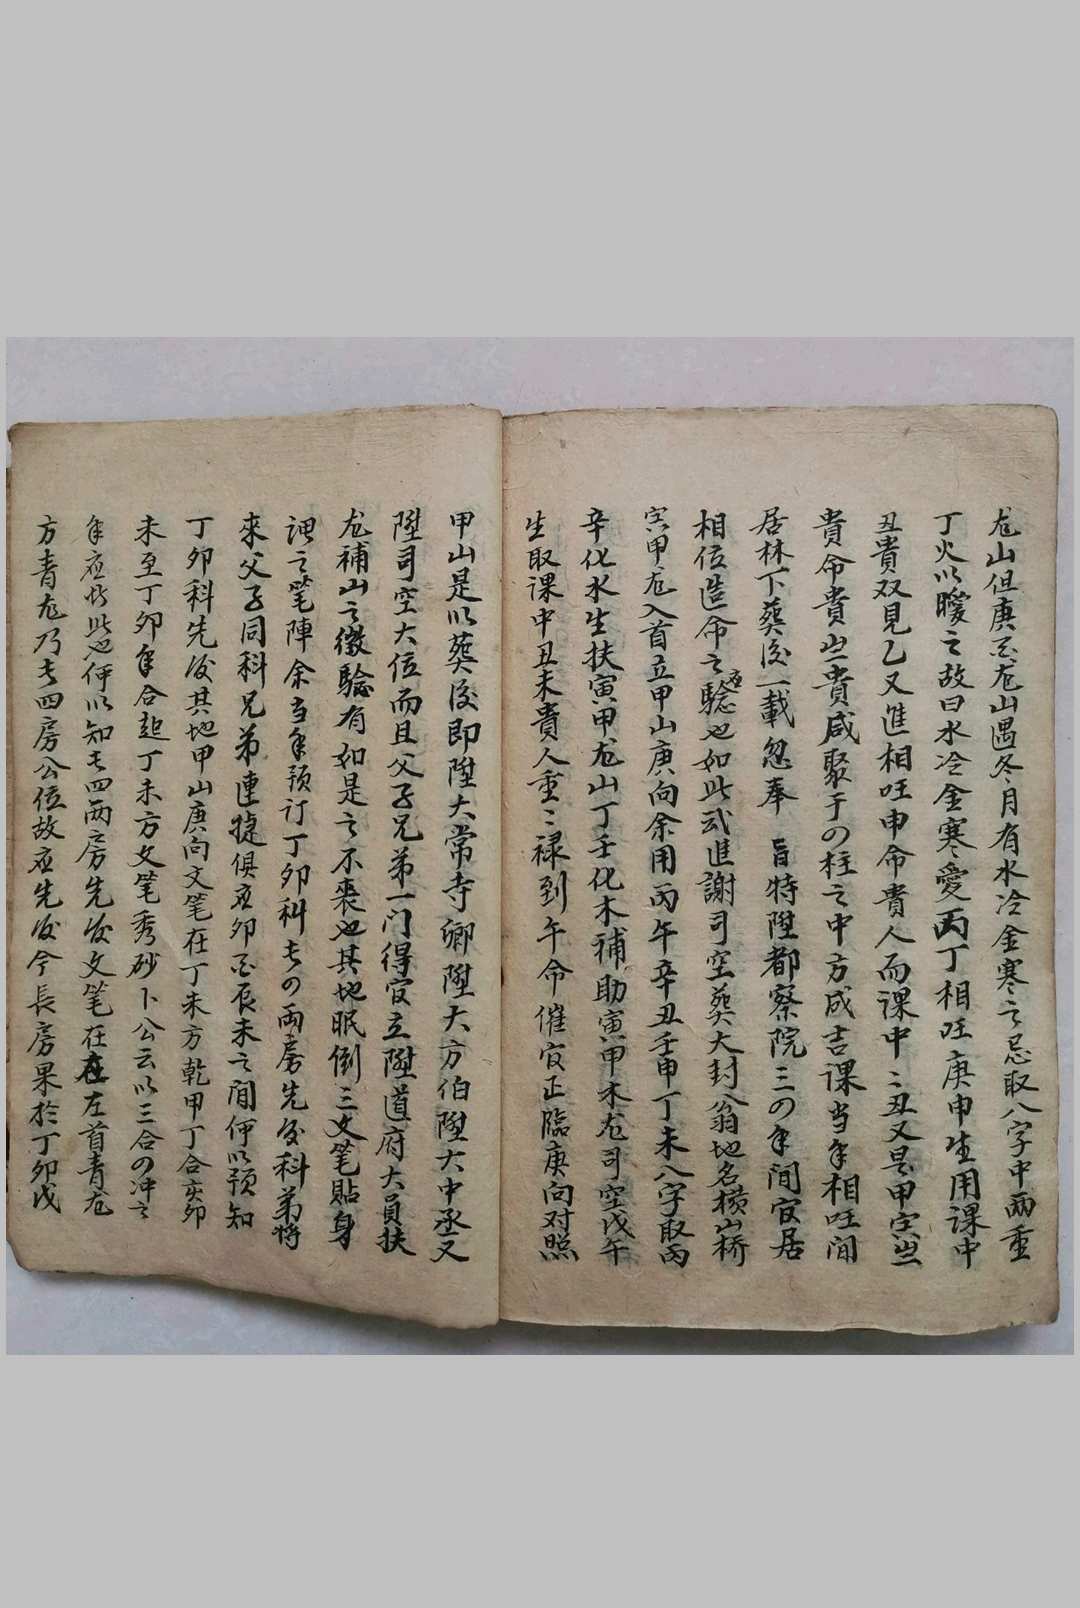 龙山但庚酉龙山遇冬月有水冷金寒之忌取八字中兩重
丁火以暖之故曰水冷金寒愛丙丁相旺庚申生用課中
丑貴双見乙又進相旺申命貴人而課中〻丑又是甲寅
貴命貴出貴咸聚于の柱之中方成吉課当年相旺间
居林下葬後一載忽奉 旨特陞都察院三の年间官居
相位造命之應驗也如此武進謝司空葬大封翁地名横山桥
寅甲龙入首立甲山庚向余用丙午辛丑壬申丁未八字取丙
辛化水生扶寅甲龙山丁壬化木補助寅甲木龙司空戊午
生取課中丑未貴人重〻禄到午命催官正臨庚向对照
甲山是以葬後即陞大常寺卿陞大方伯陞大中丞又
陞司空大位而且父子兄弟一门得官立陞道府大員扶
龙補山之徵驗有如是之不丧也其地眠倒三文笔貼身
謂之笔陣余当年预订丁卯科長の兩房先後科弟將
來父子同科兄弟連捷俱應卯酉辰未之间何以预知
丁卯科先後其地甲山庚向文笔在丁未方乾甲丁合亥卯
未至丁卯年合起丁未方文笔秀砂卜公云以三合の冲之
年應於此也何以知長四两房先後文笔在左首青龙
方青龙乃長四房公位故應先後今長房果於丁卯戊